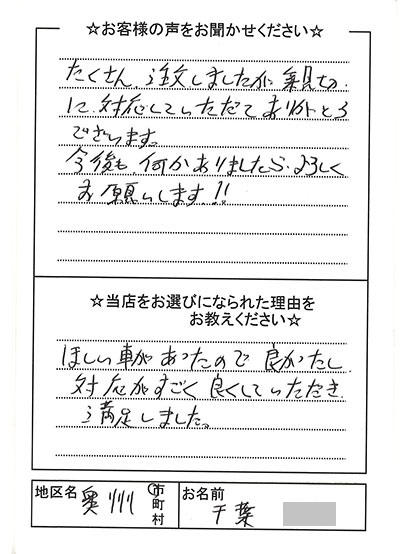 ☆お客様の声をお聞かせください☆
たくさん、注文しましたが、親切
に、対応していただてありがとう
でざいます。
今後も、何かありましたら、よろしく
お願いします!!
☆当店をお選びになられた理由を
お教えください☆
ほしい車があったので 良かったし、
対応がすごく 良くしていただき、
満足しました。
地区名 奥州 市町村
お名前 千葉